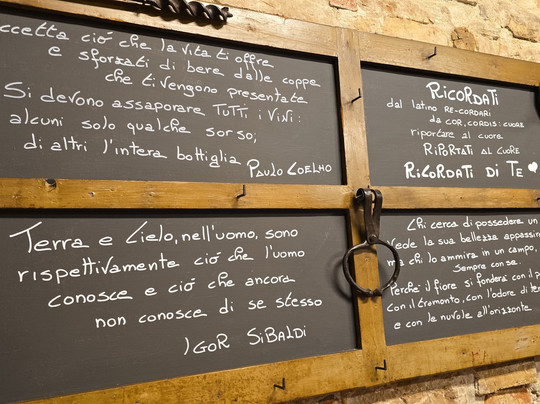 ccetta ciò che la vita ti offre
e sforzati di bere dalle coppe
che ti vengono presentate
Si devono assaporare TUTTI i VINI:
alcuni solo qualche sorso;
di altri l'intera bottiglia
PAULO COELHO
RICORDATI
dal latino RE-CORDARI
da COR, CORDIS: CUORE
riportare al cuore
RIPORTATI AL CUORE
RICORDATI DI TE
Terra e Cielo, nell'uomo, sono
rispettivamente ciò che l'uomo
conosce e ciò che ancora
non conosce di se stesso
IGOR SIBALDI
Chi cerca di possedere un
vede la sua bellezza appassir
ma chi lo ammira in un campo,
sempre con se.
Perchè il fiore si fonderà con il p
con il tramonto, con l'odore di ter
e con le nuvole all'orizzonte